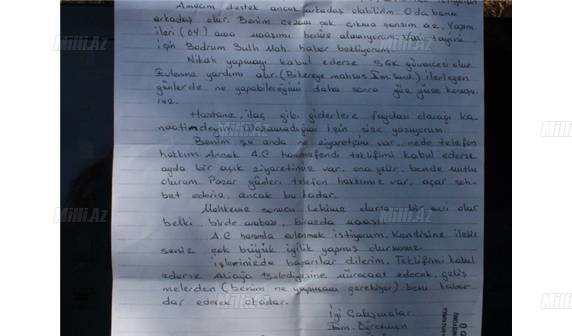 Amacım destek ancak arkadaş olabilirim. O da bana
arkadaş olur. Benim cezam çok çıkma şansım az. Yaşım
ileri (64) ama maaşımı henüz alamıyorum. Vasi tayini
için Bodrum Sulh Mah. haber bekliyorum.
Nikah yapmayı kabul ederse SGK güvencesi olur.
Evlenme yardımı alır. (Bir kereye mahsus ilerleyen
günlerde ne yapabileceğimi daha sonra yüz yüze konuşu-
ruz.
Hastane, ilaç gibi giderlere faydam olacağı ka-
naatindeyim. Ulaşamadığım için size yazıyorum.
Benim şu anda ne ziyaretçim var, nede telefon
hakkım. Ancak A.C hanımefendi teklifimi kabul ederse
ayda bir açık ziyaretimiz var, ona gelir, bende mutlu
olurum. Pazar günleri telefon hakkımız var, açar soh-
bet ederiz, ancak bu kadar.
Mahkeme sonucu lehime olursa bir evi olur
belki birde arabası, birazda maaşı.
A.C hanımla evlenmek istiyorum. Kendisine iletir-
seniz çok büyük iyilik yapmış olursunuz.
İşlerinizde başarılar dilerim. Teklifimi kabul
ederse Aliağa Belediyesine müracaat edecek, geliş-
melerden (benim ne yapmam gerekiyor) beni haber
dar edecek o kadar.
İyi Çalışmalar
Öğretmen
Milli.Az
Milli.Az
Milli.Az
Milli.Az
Milli.Az
Milli.Az
Milli.Az
Milli.Az
Milli.Az